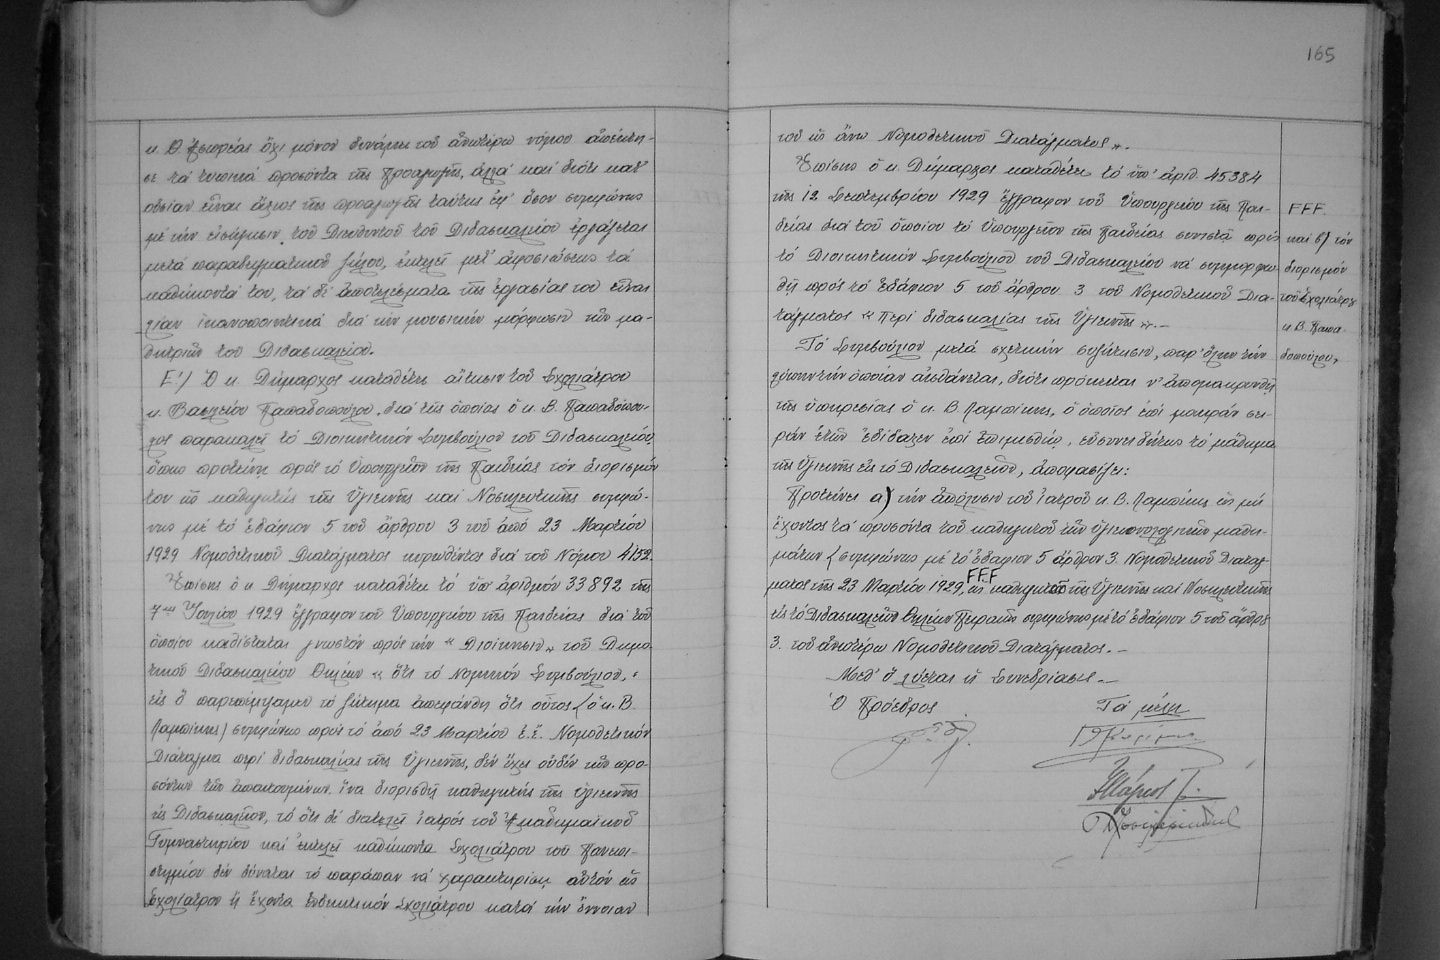 κ. Θ. Ξεωρέας ὄχι μόνον δυνάμει τοῦ ἀνωτέρω νόμου ἀπέκτη-
σε τά τυπικά προσόντα τῆς προαγωγῆς, ἀλλά καί διότι κατ'
οὐσίαν εἶναι ἄξιος τῆς προαγωγῆς ταύτης ἐφ' ὅσον συμφώνως
μέ τήν εἰσήγησιν τοῦ Διευθυντοῦ τοῦ Διδασκαλείου ἐργάζεται
μετά παραδειγματικοῦ ζήλου, ἐκτελεῖ μετ' ἀφοσιώσεως τά
καθήκοντά του, τά δέ ἀποτελέσματα τῆς ἐργασίας του εἶναι
λίαν ἱκανοποιητικά διά τήν μουσικήν μόρφωσιν τῶν μα-
θητριῶν τοῦ Διδασκαλείου.
Ε΄/ Ὁ κ. Δήμαρχος καταθέτει αἴτησιν τοῦ Σχολιάτρου
κ. Βασιλείου Παπαδοπούλου, διά τῆς ὁποίας ὁ κ. Β. Παπαδόπου-
λος παρακαλεῖ τό Διοικητικόν Συμβούλιον τοῦ Διδασκαλείου,
ὅπως προτείνῃ πρός τό Ὑπουργεῖον τῆς Παιδείας τόν διορισμόν
του ὡς καθηγητής τῆς Ὑγιεινῆς καί Νοσηλευτικῆς συμφώ-
νως μέ τό ἐδάφιον 5 τοῦ ἄρθρου 3 τοῦ ἀπό 23 Μαρτίου
1929 Νομοθετικοῦ Διατάγματος κυρωθέντος διά τοῦ Νόμου 4152.
Ἐπίσης ὁ κ. Δήμαρχος καταθέτει τό ὑπ' ἀριθμόν 33892 τῆς
7ης Ἰουλίου 1929 ἔγγραφον τοῦ Ὑπουργείου τῆς Παιδείας διά τοῦ
ὁποίου καθίσταται γνωστόν πρός τήν « Διοίκησιν » τοῦ Δημο-
τικοῦ Διδασκαλείου Θηλέων « ὅτι τό Νομικόν Συμβούλιον,
εἰς ὅ παρεπέμψαμεν τό ζήτημα ἀπεφάνθη ὅτι οὗτος (ὁ κ. Β.
Λαμπίκης) συμφώνως πρός τό ἀπό 23 Μαρτίου ἐ.ἔ. Νομοθετικόν
Διάταγμα περί διδασκαλίας τῆς Ὑγιεινῆς, δέν ἔχει οὐδέν τῶν προ-
σόντων τῶν ἀπαιτουμένων ἵνα διορισθῇ καθηγητής τῆς ὑγιεινῆς
εἰς Διδασκαλεῖον, τό ὅτι δέ διατελεῖ ἰατρός τοῦ Ἀκαδημαϊκοῦ
Γυμναστηρίου καί ἐκτελεῖ καθήκοντα Σχολιάτρου τοῦ Πανεπι-
στημίου δέν δύναται τό παράπαν νά χαρακτηρίσῃ αὐτόν ὡς
Σχολίατρον ἤ ἔχοντα ἐνδεικτικόν Σχολιάτρου κατά τήν ἔννοιαν
165
τοῦ ὡς ἄνω Νομοθετικοῦ Διατάγματος ».
Ἐπίσης ὁ κ. Δήμαρχος καταθέτει τό ὑπ' ἀριθ. 45384
τῆς 12 Σεπτεμβρίου 1929 ἔγγραφον τοῦ Ὑπουργείου τῆς Παι-
δείας διά τοῦ ὁποίου τό Ὑπουργεῖον τῆς Παιδείας συνιστᾷ πρός
τό Διοικητικόν Συμβούλιον τοῦ Διδασκαλείου νά συμμορφω-
θῇ πρός τό ἐδάφιον 5 τοῦ ἄρθρου 3 τοῦ Νομοθετικοῦ Δια-
τάγματος « περί διδασκαλίας τῆς Ὑγιεινῆς ». –
Τό Συμβούλιον μετά σχετικήν συζήτησιν, παρ' ὅλην τήν
λύπην τήν ὁποίαν αἰσθάνεται, διότι πρόκειται ν' ἀπομακρυνθῇ
τῆς ὑπηρεσίας ὁ κ. Β. Λαμπίκης, ὁ ὁποῖος ἐπί μακράν σει-
ράν ἐτῶν ἐδίδαξεν ἐπί ἐπιμελῶς, εὐσυνειδήτως τό μάθημα
τῆς Ὑγιεινῆς εἰς τό Διδασκαλεῖον, ἀποφασίζει:
Προτείνει α) τήν ἀπόλυσιν τοῦ ἰατροῦ κ. Β. Λαμπίκη ὡς μή
ἔχοντος τά προσόντα τοῦ καθηγητοῦ τῶν ὑγιεινολογικῶν μαθη-
μάτων (συμφώνως μέ τό ἐδάφιον 5 ἄρθρον 3. Νομοθετικοῦ Διατάγ-
ματος τῆς 23 Μαρτίου 1929, FFF ὡς καθηγητοῦ τῆς Ὑγιεινῆς καί Νοσηλευτικῆς
εἰς τό Διδασκαλεῖον Θηλέων Πειραιῶς συμφώνως μέ τό ἐδάφιον 5 τοῦ ἄρθρου
3. τοῦ ἀνωτέρω Νομοθετικοῦ Διατάγματος. –
FFF.
καί β) τόν
διορισμόν
τοῦ Σχολιάτρου
κ. Β. Παπα-
δοπούλου,
Μεθ' ὅ λύεται ἡ Συνεδρίασις. –
Ὁ Πρόεδρος
Τά μέλη